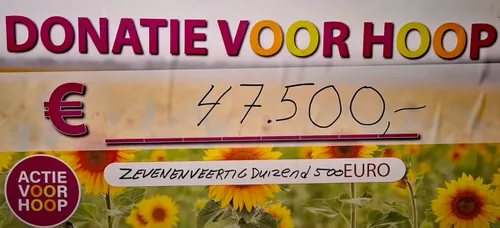 DONATIE VOOR HOOP
€ 47.500,-
ZEVENENVEERTIG Duizend 500 EURO
ACTIE
VOOR
HOOP